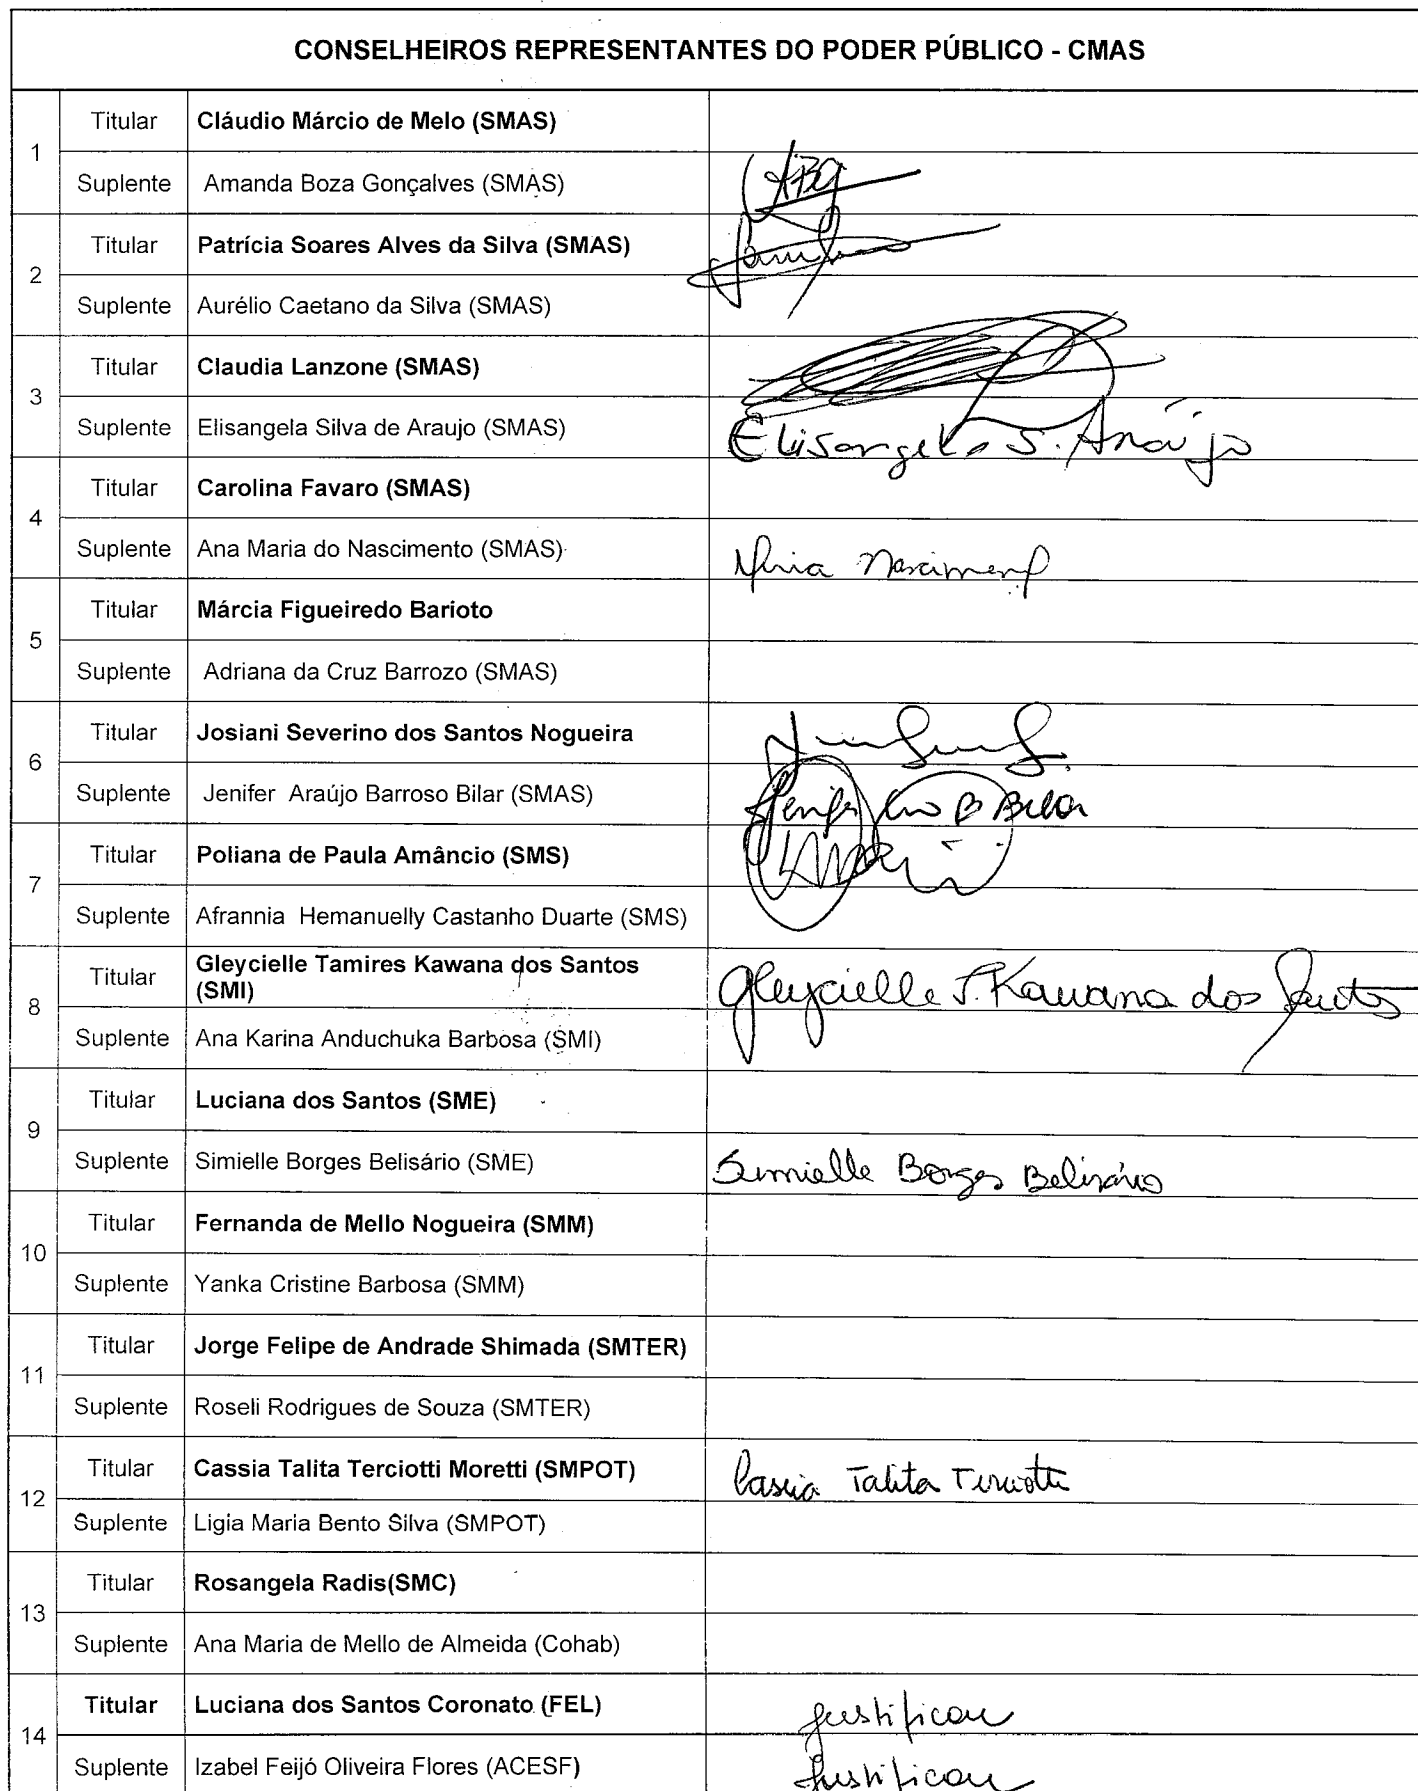 CONSELHEIROS REPRESENTANTES DO PODER PÚBLICO - CMAS
1
Titular Cláudio Márcio de Melo (SMAS)
Suplente Amanda Boza Gonçalves (SMAS) ABG
2
Titular Patrícia Soares Alves da Silva (SMAS)
Suplente Aurélio Caetano da Silva (SMAS)
3
Titular Claudia Lanzone (SMAS)
Suplente Elisangela Silva de Araujo (SMAS) Elisangela S. Araújo
4
Titular Carolina Favaro (SMAS)
Suplente Ana Maria do Nascimento (SMAS)
5
Titular Márcia Figueiredo Barioto
Suplente Adriana da Cruz Barrozo (SMAS)
6
Titular Josiani Severino dos Santos Nogueira
Suplente Jenifer Araújo Barroso Bilar (SMAS) B Bilar
7
Titular Poliana de Paula Amâncio (SMS)
Suplente Afrannia Hemanuelly Castanho Duarte (SMS)
8
Titular Gleycielle Tamires Kawana dos Santos
(SMI) Gleycielle T. Kawana dos Santos
Suplente Ana Karina Anduchuka Barbosa (SMI)
9
Titular Luciana dos Santos (SME)
Suplente Simielle Borges Belisário (SME) Simielle Borges Belisário
10
Titular Fernanda de Mello Nogueira (SMM)
Suplente Yanka Cristine Barbosa (SMM)
11
Titular Jorge Felipe de Andrade Shimada (SMTER)
Suplente Roseli Rodrigues de Souza (SMTER)
12
Titular Cassia Talita Terciotti Moretti (SMPOT) Cassia Talita Terciotti
Suplente Ligia Maria Bento Silva (SMPOT)
13
Titular Rosangela Radis(SMC)
Suplente Ana Maria de Mello de Almeida (Cohab)
14
Titular Luciana dos Santos Coronato (FEL) Justificou
Suplente Izabel Feijó Oliveira Flores (ACESF) Justificou